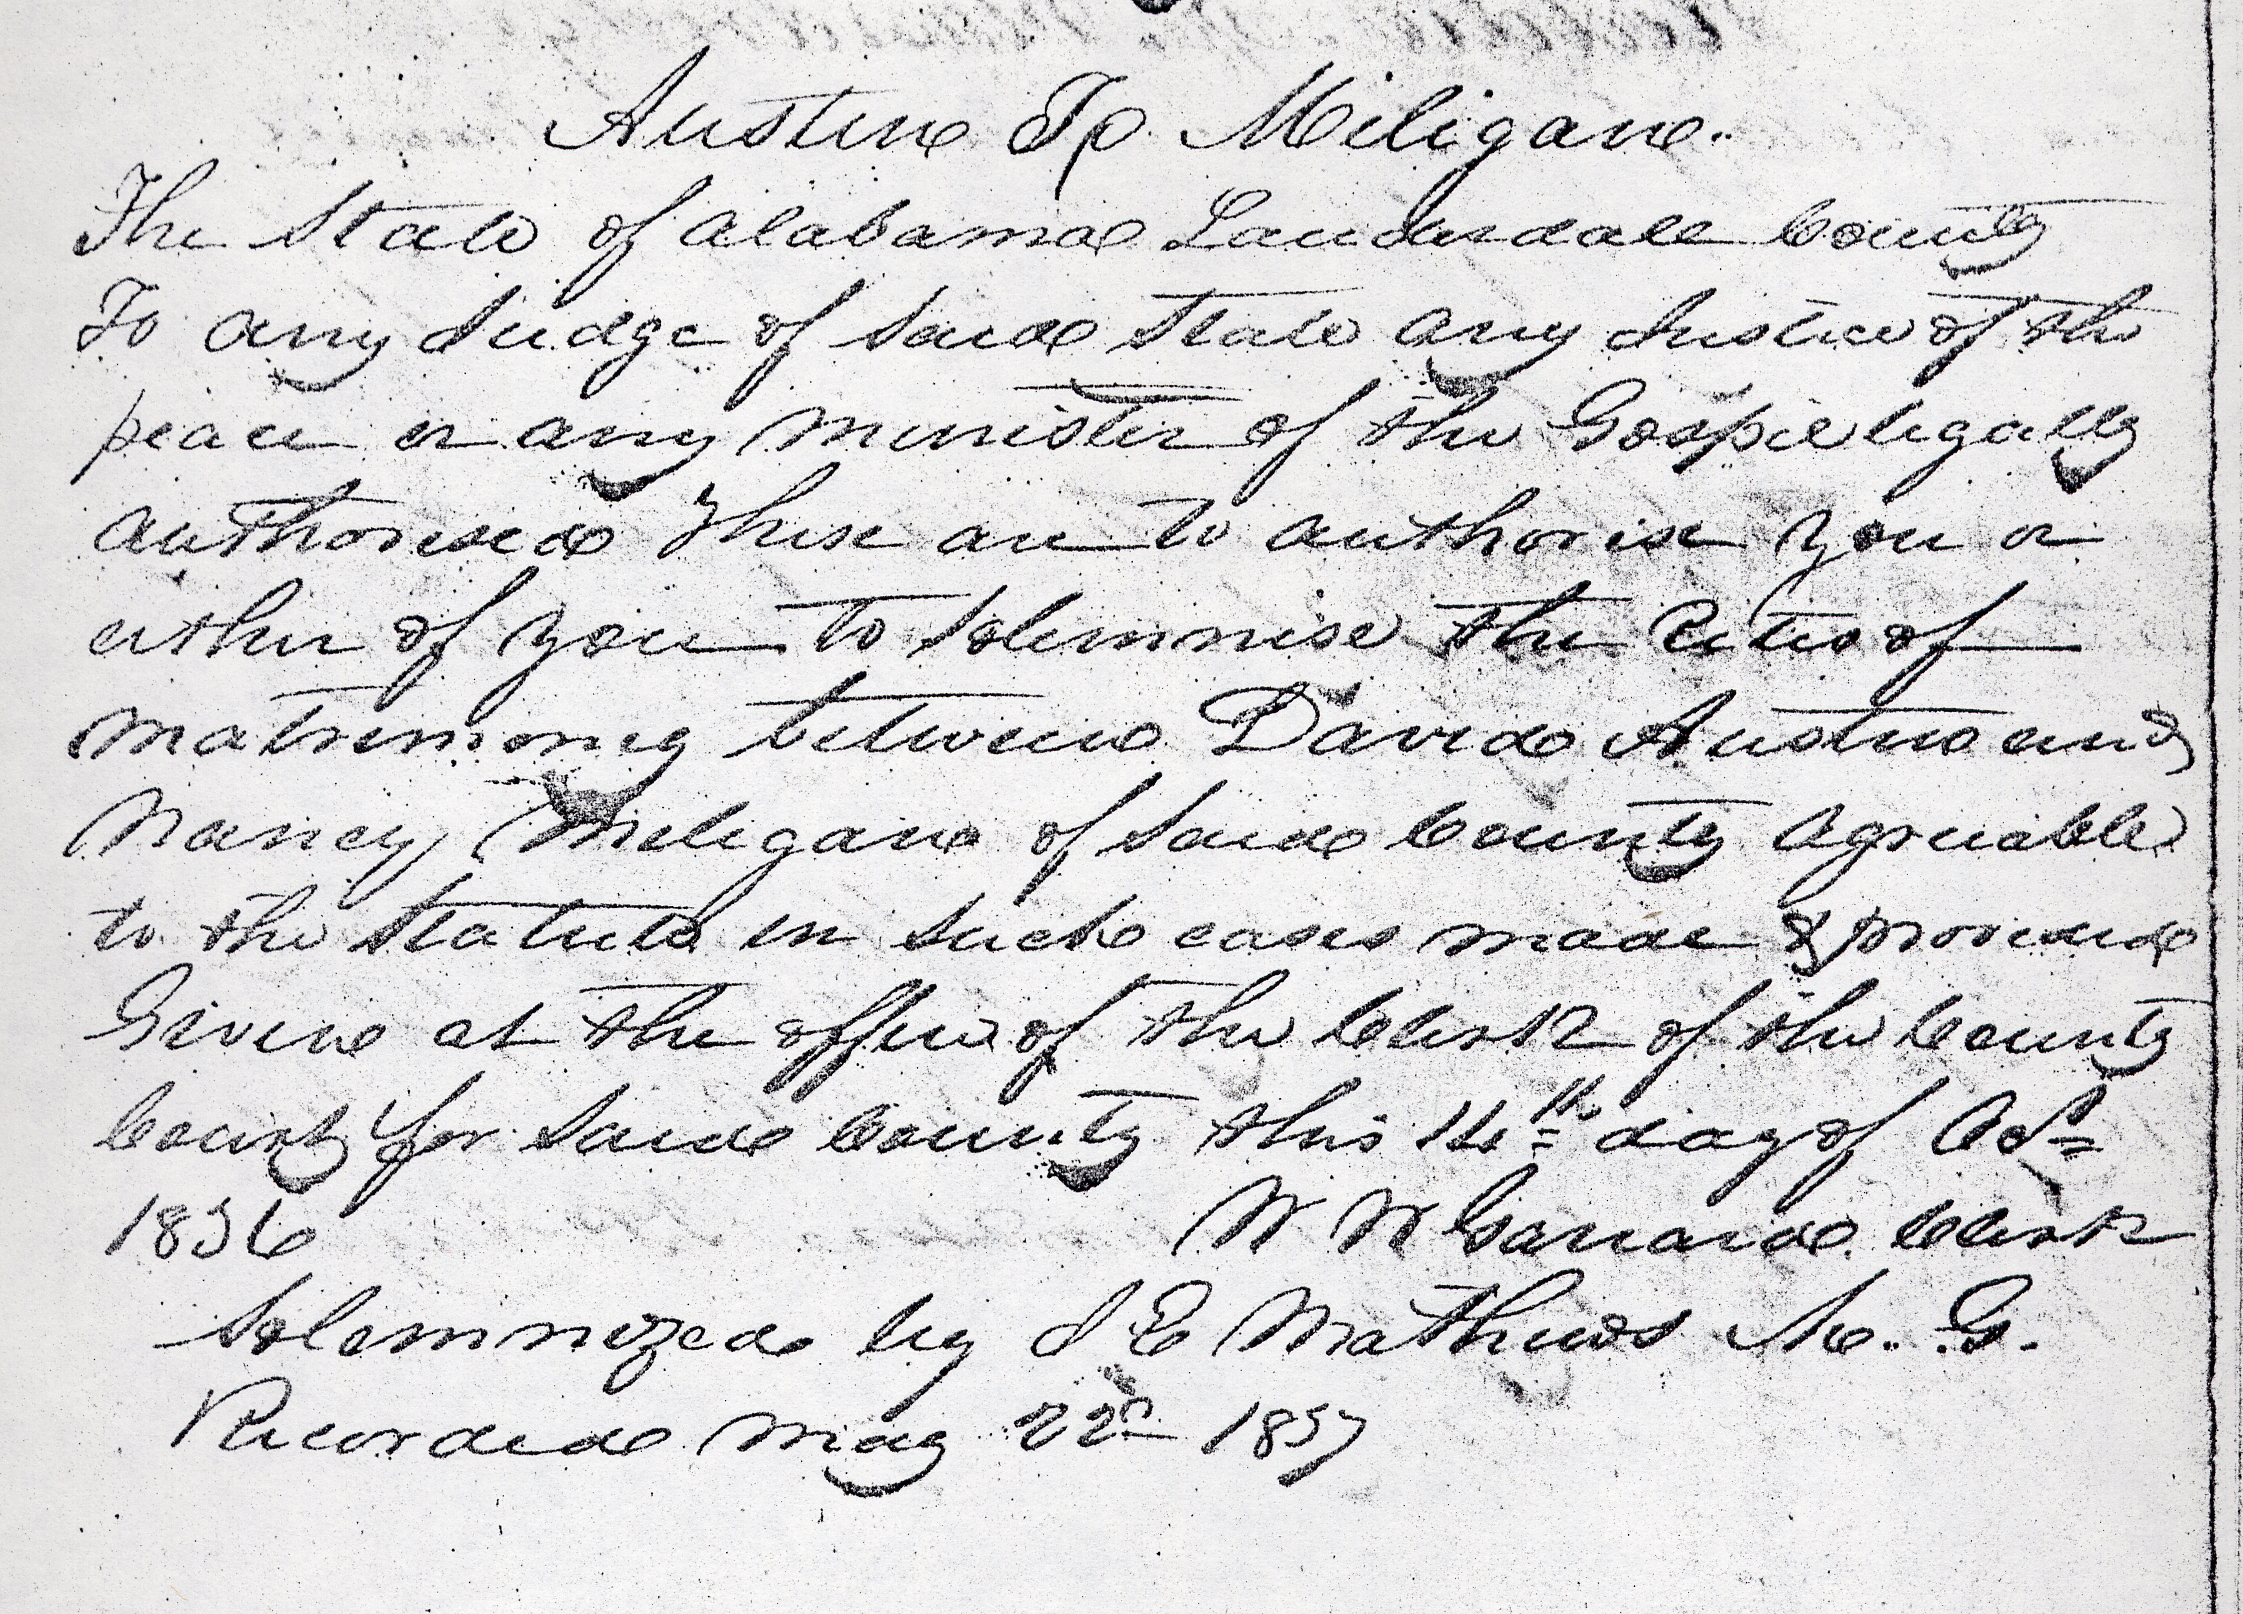 Austin To Miligan.
The State of Alabama Lauderdale County
To any Judge of Said State any Justice of the
peace or any minister of the Gospel legally
authorised These are to authorise you or
either of you to Solemnise the Rites of
matrimony between David Austin and
Nancy Miligan of Said County agreeable
to the Statute in Such cases made & provided
Given at the office of the Clerk of the County
Court for Said County this 14th day of
W W Garrard Clerk
Solemnized by J E Mathews M. G.
Recorded May 22n